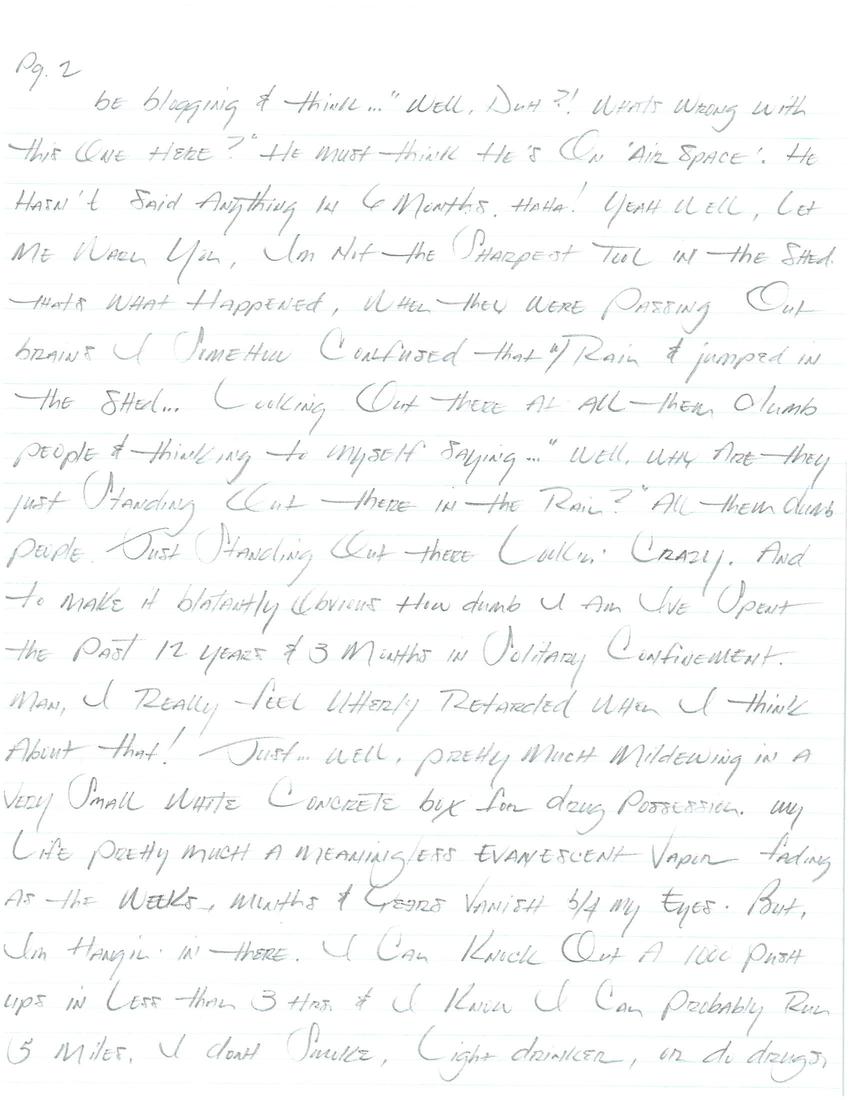 Pg. 2
be blogging & think..." Well, Duh?! Whats wrong with
this one here?" He must think he's on 'Air Space'. He
hasn't said anything in 6 months. Haha! Yeah well, let
me warn you, Im not the sharpest tool in the shed.
thats what happened, when they were passing out
brains I somehow confused that w/ rain & jumped in
the shed... Looking out there at all them dumb
people & thinking to myself saying..." Well, why are they
just standing out there in the rain?" All them dumb
people. Just standing out there lookin' crazy. And
to make it blatantly obvious how dumb I am Ive spent
the past 12 years & 3 months in solitary confinement.
Man, I really feel utterly retarded when I think
about that! Just... well, pretty much mildewing in a
very small white concrete box for drug possession. My
life pretty much a meaningless evanescent vapor fading
as the weeks, months & years vanish b/4 my eyes. But,
Im hangin' in there. I can knock out a 1000 push
ups in less than 3 hrs & I know I can probably run
15 miles. I dont smoke, light drinker, or do drugs,